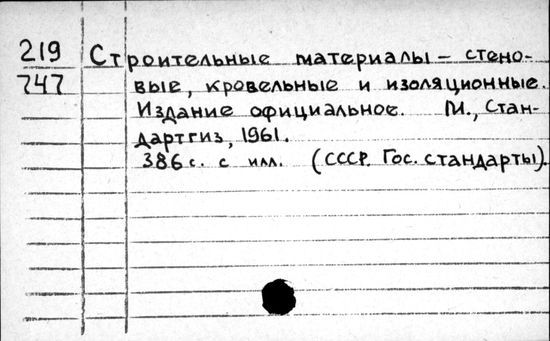 219 Строительные материалы – стено-
747 вые, кровельные и изоляционные.
Издание официальное. М., Стан-
дартгиз, 1961.
386 с. с илл. (СССР. Гос. стандарты).